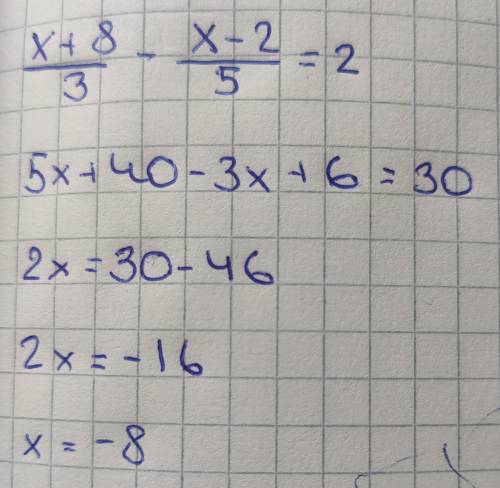 (x+8)/3 - (x-2)/5 = 2
5x+40-3x+6=30
2x=30-46
2x=-16
x=-8